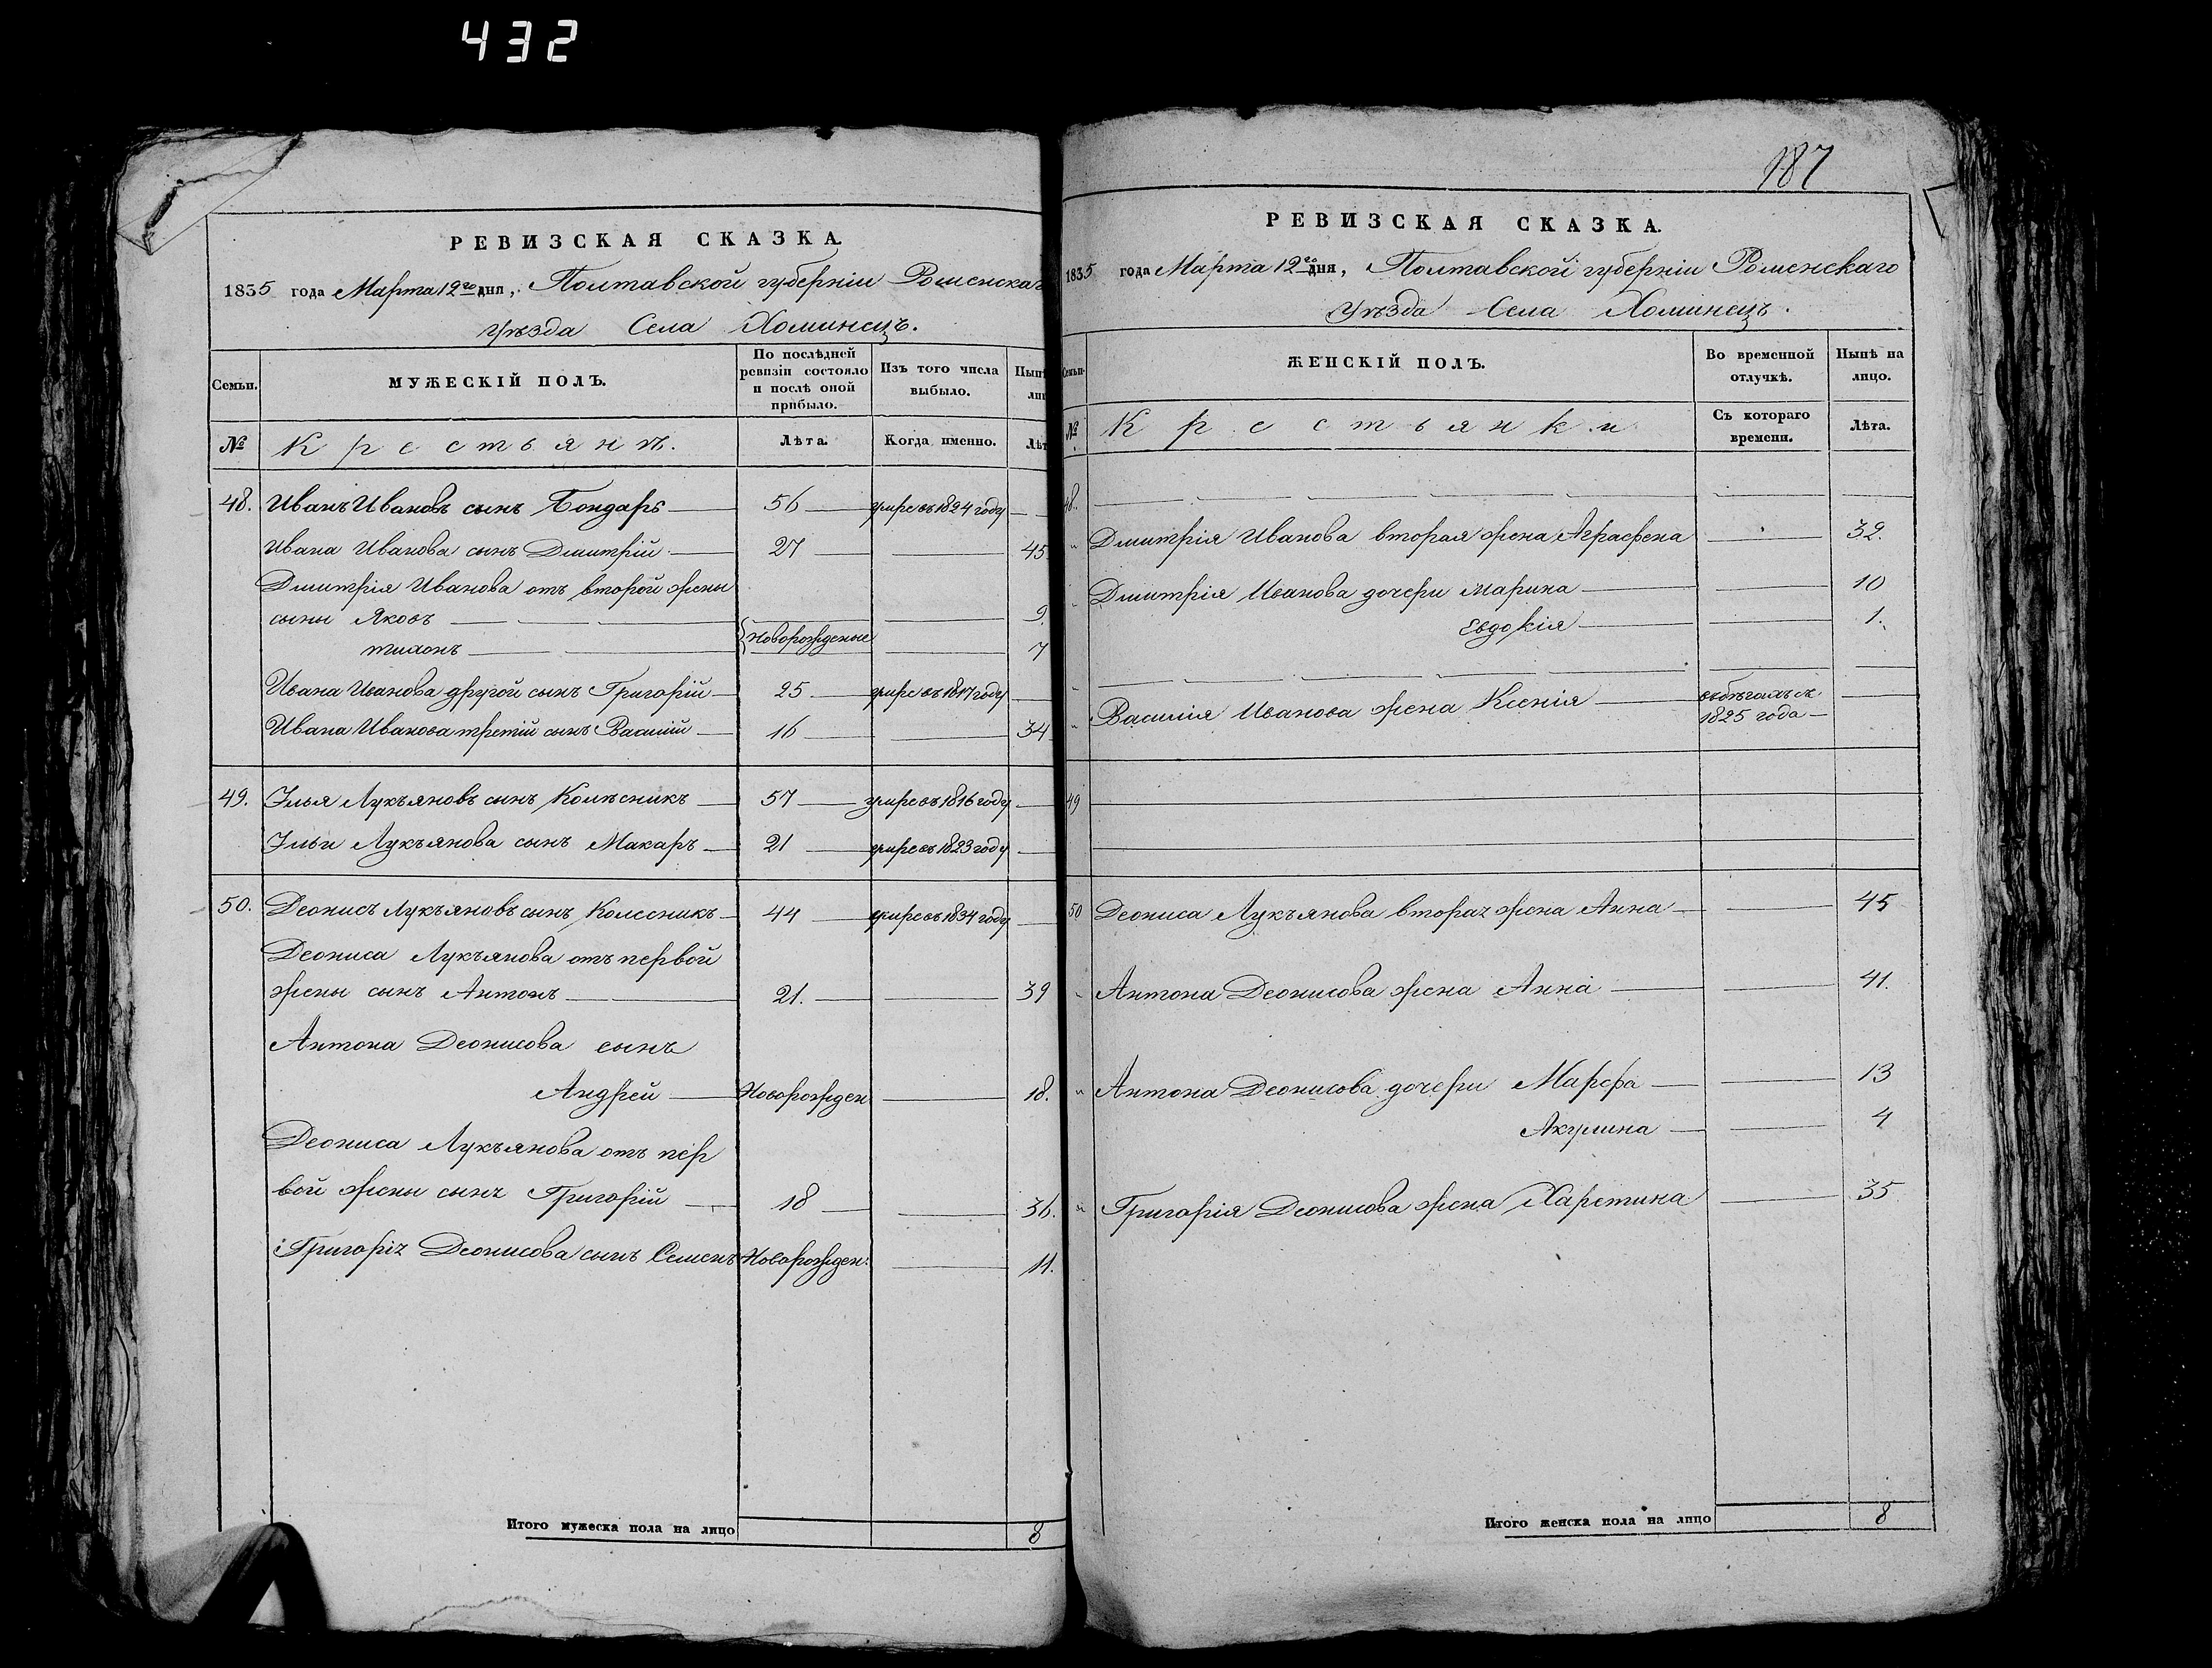 432
РЕВИЗСКАЯ СКАЗКА.
1835 года Марта 12го дня, Полтавской губерніи Роменскаг
Уѣзда Села Хоминецъ.
Семьи.
МУЖЕСКІЙ ПОЛЪ.
По послѣдней ревизіи состояло и послѣ оной прибыло.
Изъ того числа выбыло.
Нынѣ
лиц
№
Крестьянѣ.
Лѣта.
Когда именно.
Лѣт
48. Иванъ Ивановъ сынъ Бондарь 56 умре въ 1824 году
Ивана Иванова сынъ Дмитрій 27 45
Дмитрія Иванова отъ второй жены
сыны Яковъ 9
новорожденые
тихонъ 7
Ивана Иванова другой сынъ Григорій 25 умре въ 1817 году
Ивана Иванова третій сынъ Василій 16 34
49. Илья Лукъяновъ сынъ Колѣсникъ 57 умре въ 1816 году
Ильи Лукъянова сынъ Макаръ 21 умре въ 1823 году
50. Деонисъ Лукъяновъ сынъ Колесникъ 44 умре въ 1834 году
Деониса Лукъянова отъ первой
жены сынъ Антонъ 21. 39
Антона Деонисова сынъ
Андрей Новорожден 18.
Деониса Лукъянова отъ пер
вой жены сынъ Григорій 18 36.
Григорія Деонисова сынъ Семенъ Новорожден: 11.
Итого мужеска пола на лицо 8
187
РЕВИЗСКАЯ СКАЗКА.
1835 года Марта 12го дня, Полтавской губерніи Роменскаго
Уѣзда Села Хоминецъ.
Семьи.
ЖЕНСКІЙ ПОЛЪ.
Во временной отлучкѣ.
Нынѣ на лицо.
№
Крестьянки
Съ котораго времени.
Лѣта.
48.
" Дмитрія Иванова вторая жена Аграфена 32.
" Дмитрія Иванова дочери марина 10
Евдокія 1.
въ бѣгахъ съ
" Василія Иванова жена Ксенія 1825 года
49
50 Деониса Лукъянова вторая жена Анна 45
" Антона Деонисова жена Анна 41.
" Антона Деонисова дочери Марфа 13
Акулина 4
" Григорія Деонисова жена Харетина 35
Итого женска пола на лицо 8